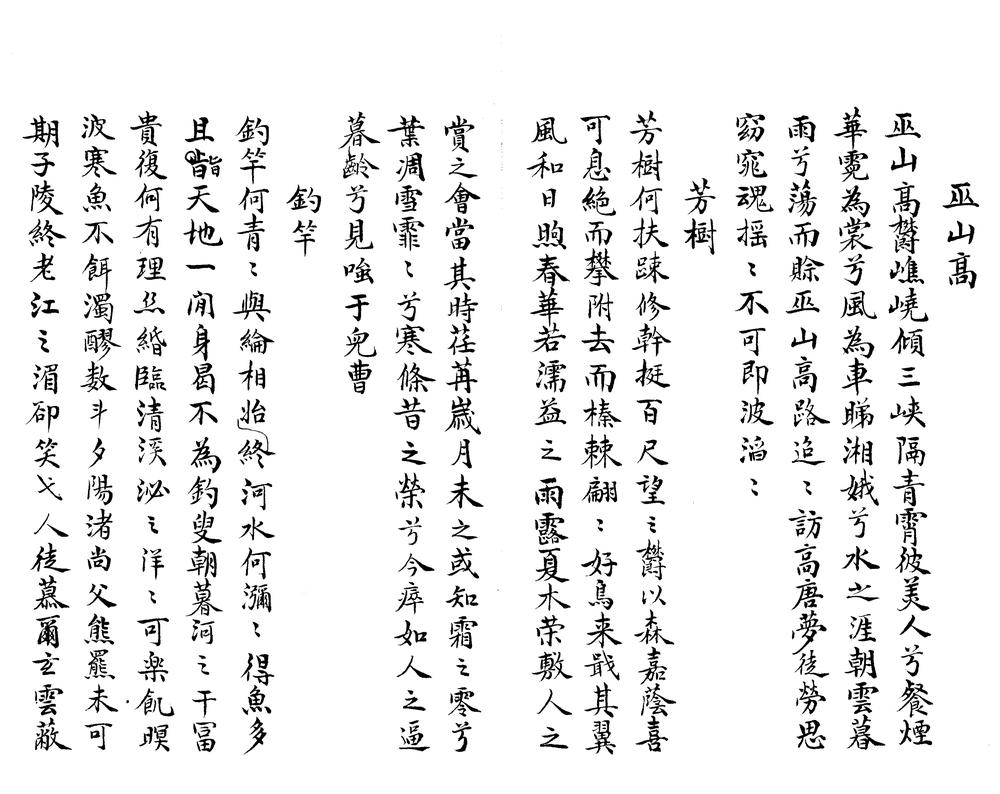 巫山高
巫山高欝嶕嶢傾三峽隔青霄彼美人兮餐煙
華霓為裳兮風為車睇湘娥兮水之涯朝雲暮
雨兮蕩而賒巫山高路迢〻訪高唐夢徒勞思
窈窕魂揺〻不可即波滔〻
芳樹
芳樹何扶踈修幹挺百尺望〻欝以森嘉蔭喜
可息絶而攀附去而榛棘翩〻好鳥来戢其翼
風和日煦春華若濡益之雨露夏木荣敷人之
賞之會當其時荏苒歲月未之或知霜〻零兮
葉凋雪霏〻兮寒條昔之榮兮今瘁如人之逼
暮齡兮見嗤于兒曹
釣竿
釣竿何青〻與綸相始終河水何瀰〻得魚多
且㫖天地一閒身曷不為釣叟朝暮河之干冨
貴復何有理丝緡臨清溪泌〻洋〻可楽飢暝
波寒魚不餌濁醪数斗夕陽渚尚父熊羆未可
期子陵終老江之湄卻笑弋人徒慕爾玄雲蔽